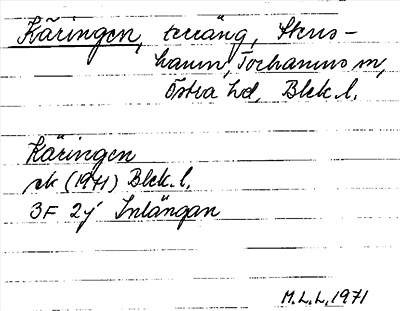 Käringen, terräng, Stens-
hamn, Torhamns sn,
Östra hd, Blek. l.
Käringen
ek (1971) Blek. l.
3F 2j Inlängan
M.L.L. 1971